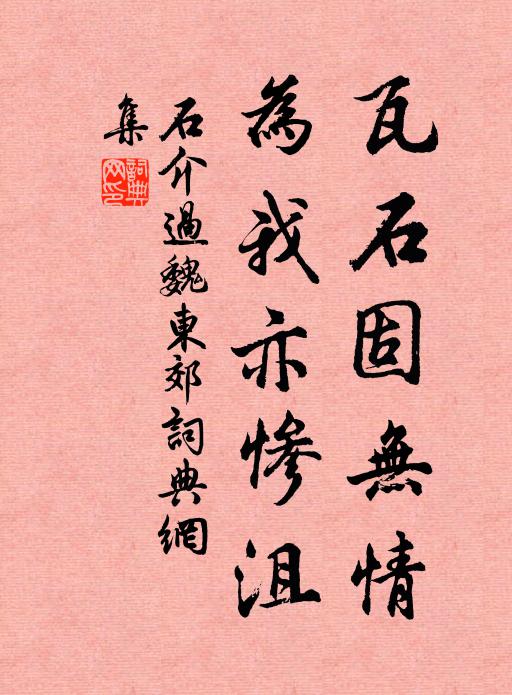 瓦石固無情
為我亦慘沮
石介過魏東郊詞典網
集
詞典
网印